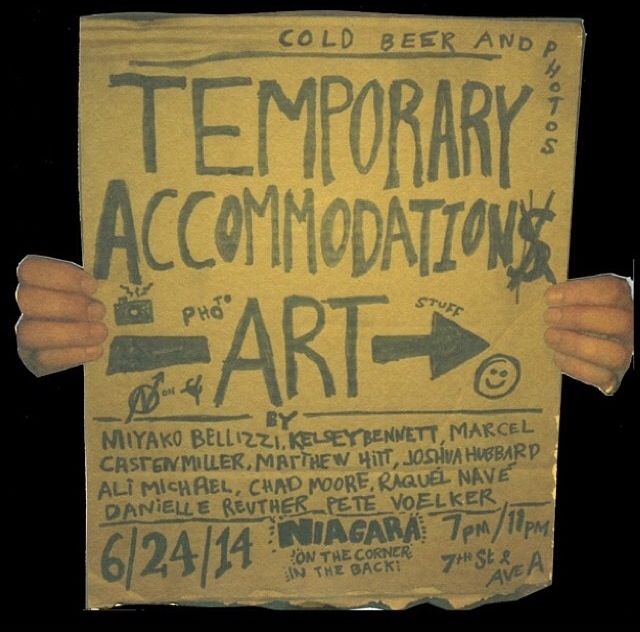 COLD BEER AND PHOTOS
TEMPORARY
ACCOMMODATION$
PHOTO
ART
STUFF
N ON 4
BY
MIYAKO BELLIZZI, KELSEY BENNETT, MARCEL
CASTENMILLER, MATTHEW HITT, JOSHUA HUBBARD
ALI MICHAEL, CHAD MOORE, RAQUÉL NAVÉ
DANIELLE REUTHER, PETE VOELKER
6/24/14
NIAGARA
ON THE CORNER
IN THE BACK!
7PM/11PM
7TH St &
AVE A